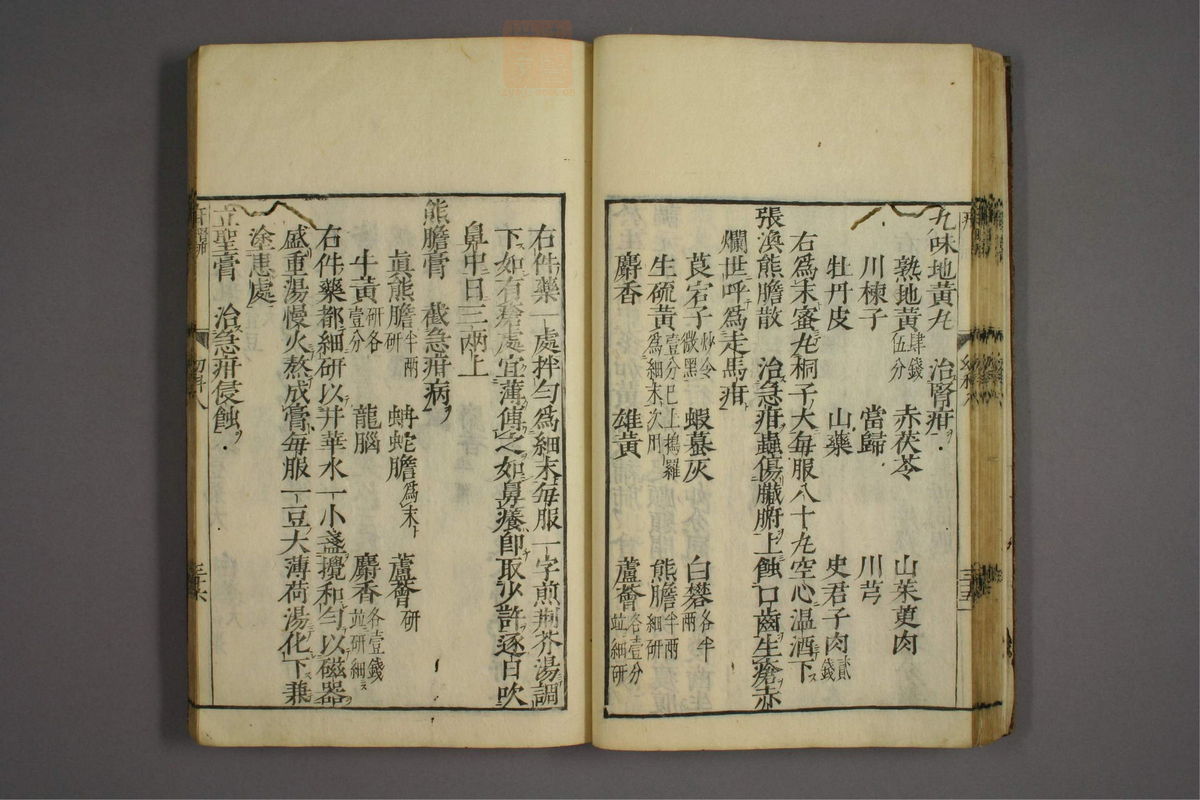 九味地黃丸　治腎疳
熟地黃肆錢伍分　赤茯苓　山茱萸肉
川楝子　當歸　川芎
牡丹皮　山藥　史君子肉貳錢
右爲末蜜丸桐子大每服八十丸空心温酒下
張渙熊膽散　治急疳蟲傷臟腑上蝕口齒生瘡赤
爛世呼爲走馬疳
莨宕子炒令微黑　蝦蟇灰　白礬各半兩
生硫黃壹分巳上搗羅爲細末次用　熊膽半兩細研
麝香　雄黃　蘆薈各壹分並細研
右件藥一處拌勻爲細末每服一字煎荆芥湯調
下如有瘡處宜薄傅之如鼻癢卽取少許逐日吹
鼻中日三兩上
熊膽膏　截急疳病
眞熊膽半兩研　蚺蛇膽爲末　蘆薈研
牛黃研各壹分　龍腦　麝香各壹錢並研細
右件藥都細研以井華水一小盞攪和勻以磁器
盛重湯慢火熬成膏每服一豆大薄荷湯化下兼
塗患處
立聖膏　治急疳侵蝕
幼科八
三十六